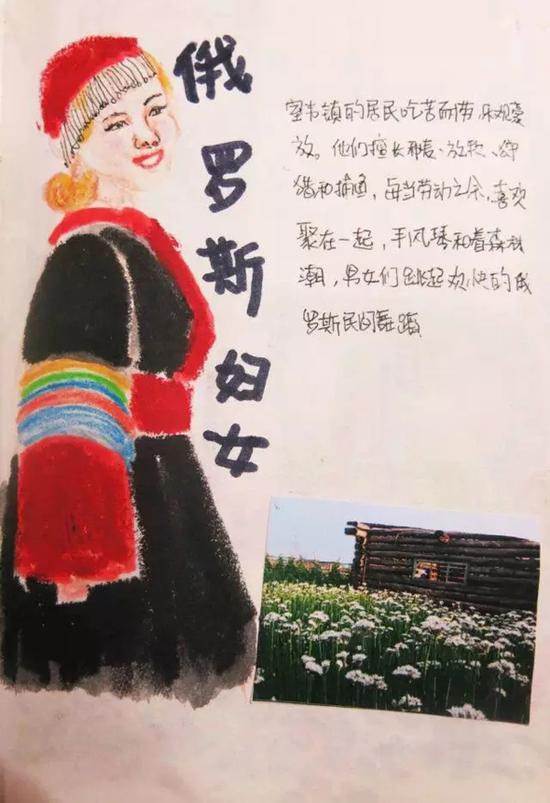 俄罗斯妇女
室韦镇的居民吃苦耐劳、乐观豪
放。他们擅长种麦、放牧、狩
猎和捕鱼，每当劳动之余，喜欢
聚在一起，手风琴和着森林
潮，男女们跳起欢快的俄
罗斯民间舞蹈